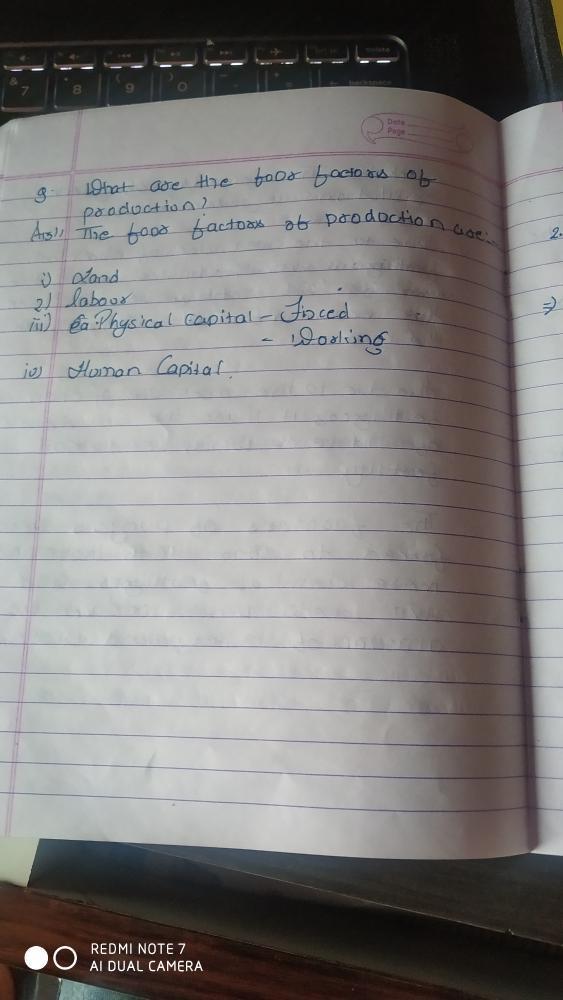 7
8
9
0
backspace
Date
Page
9. What are the four factors of
production?
Ans1. The four factors of production are:-
i) Land
2) labour
iii) Physical capital - Fixed
- Working
iv) Human Capital.
2.
⇒
REDMI NOTE 7
AI DUAL CAMERA